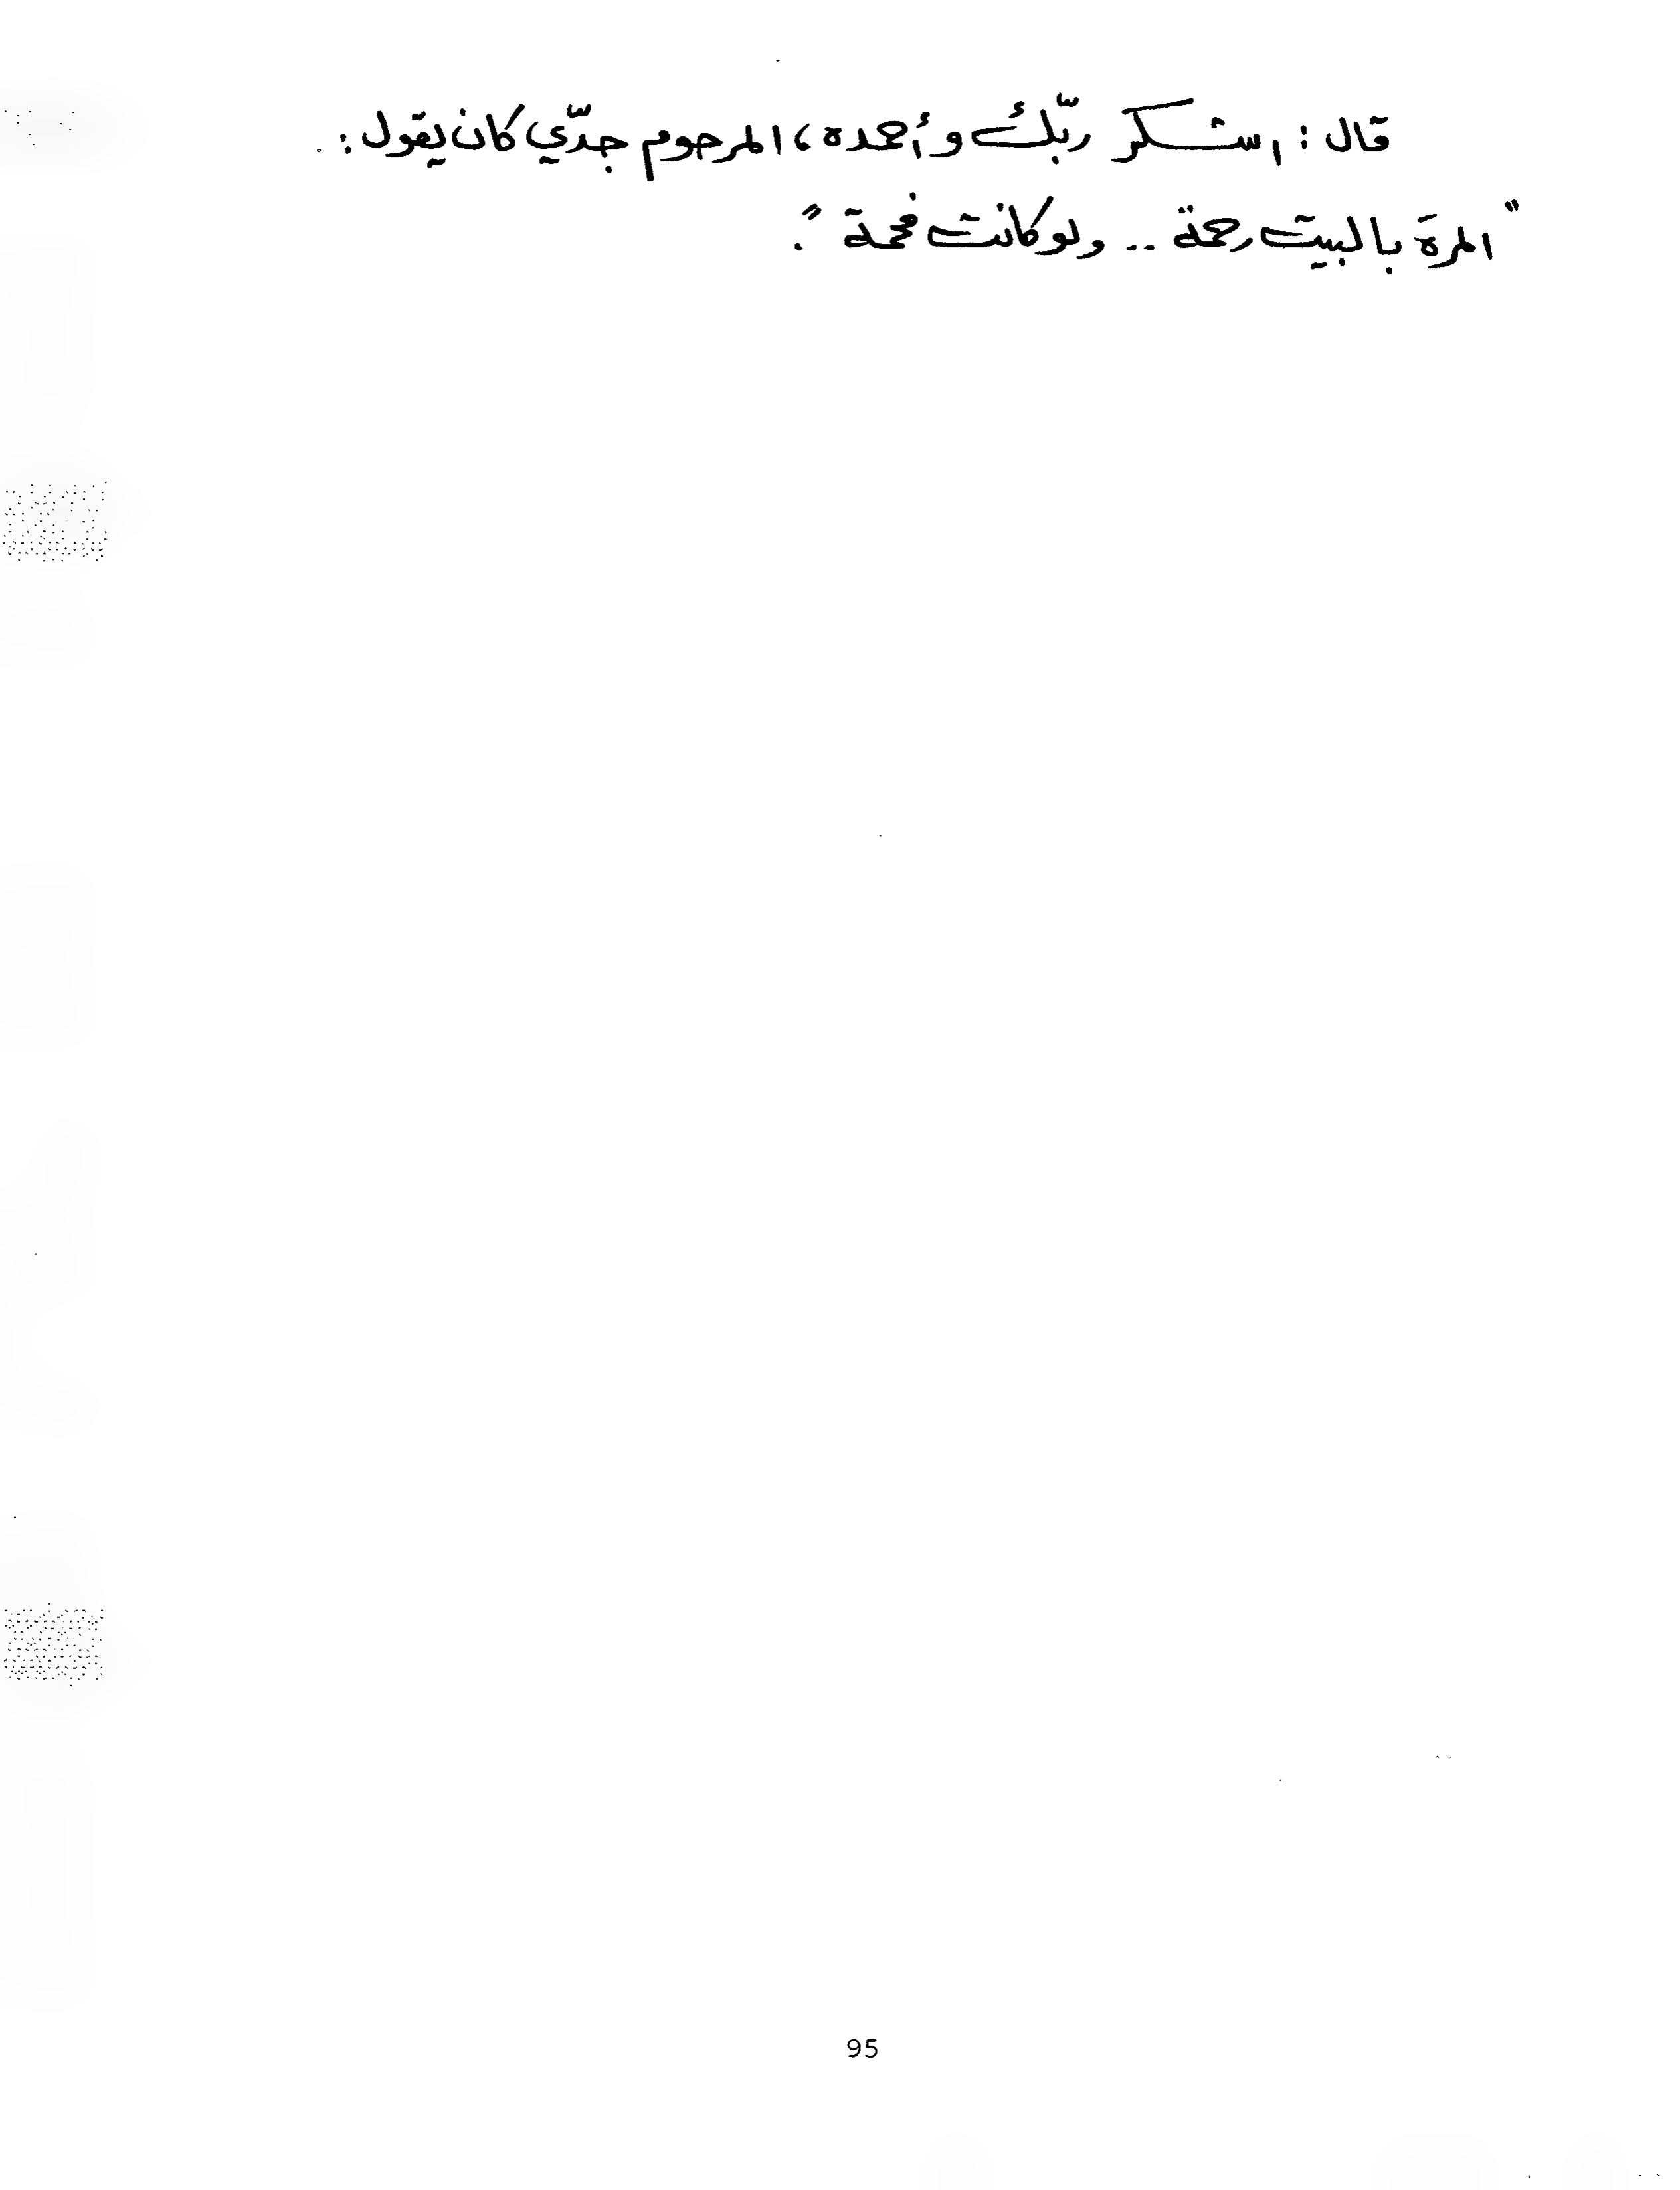 قال : اشكر ربّك وأحمده ، المرحوم جدّي كان يقول :
" المرة بالبيت رحمة .. ولو كانت فحمة " .
95